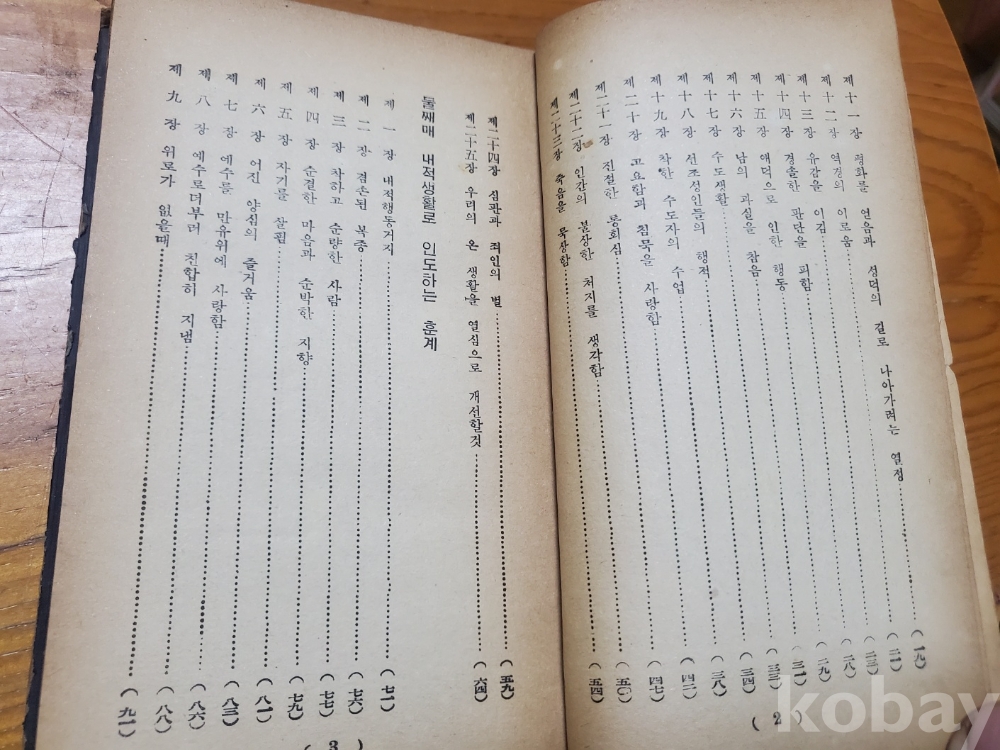 제十一장 평화를 얻음과 성덕의 길로 나아가려는 열정 (一九)
제十二장 역경의 이로움 (二一)
제十三장 유감을 이김 (二三)
제十四장 경솔한 판단을 피함 (二八)
제十五장 애덕으로 인한 행동 (二九)
제十六장 남의 과실을 참음 (三一)
제十七장 수도생활 (三三)
제十八장 선조성인들의 행적 (三四)
제十九장 착한 수도자의 수업 (三八)
제二十장 고요함과 침묵을 사랑함 (四二)
제二十一장 진절한 통회심 (四七)
제二十二장 인간의 불상한 처지를 생각함 (五〇)
제二十三장 죽음을 묵상함 (五四)
( 2 )
제二十四장 심판과 죄인의 벌 (五九)
제二十五장 우리의 온 생활을 열심으로 개선할것 (六四)
둘째매 내적생활로 인도하는 훈계
제 一 장 내적행동거지 (七一)
제 二 장 겸손된 복종 (七六)
제 三 장 착하고 순량한 사람 (七七)
제 四 장 순결한 마음과 순박한 지향 (七九)
제 五 장 자기를 살핌 (八一)
제 六 장 어진 양심의 즐거움 (八三)
제 七 장 예수를 만유위에 사랑함 (八六)
제 八 장 예수로더부러 친합히 지냄 (八八)
제 九 장 위로가 없을때 (九一)
( 3
kobay